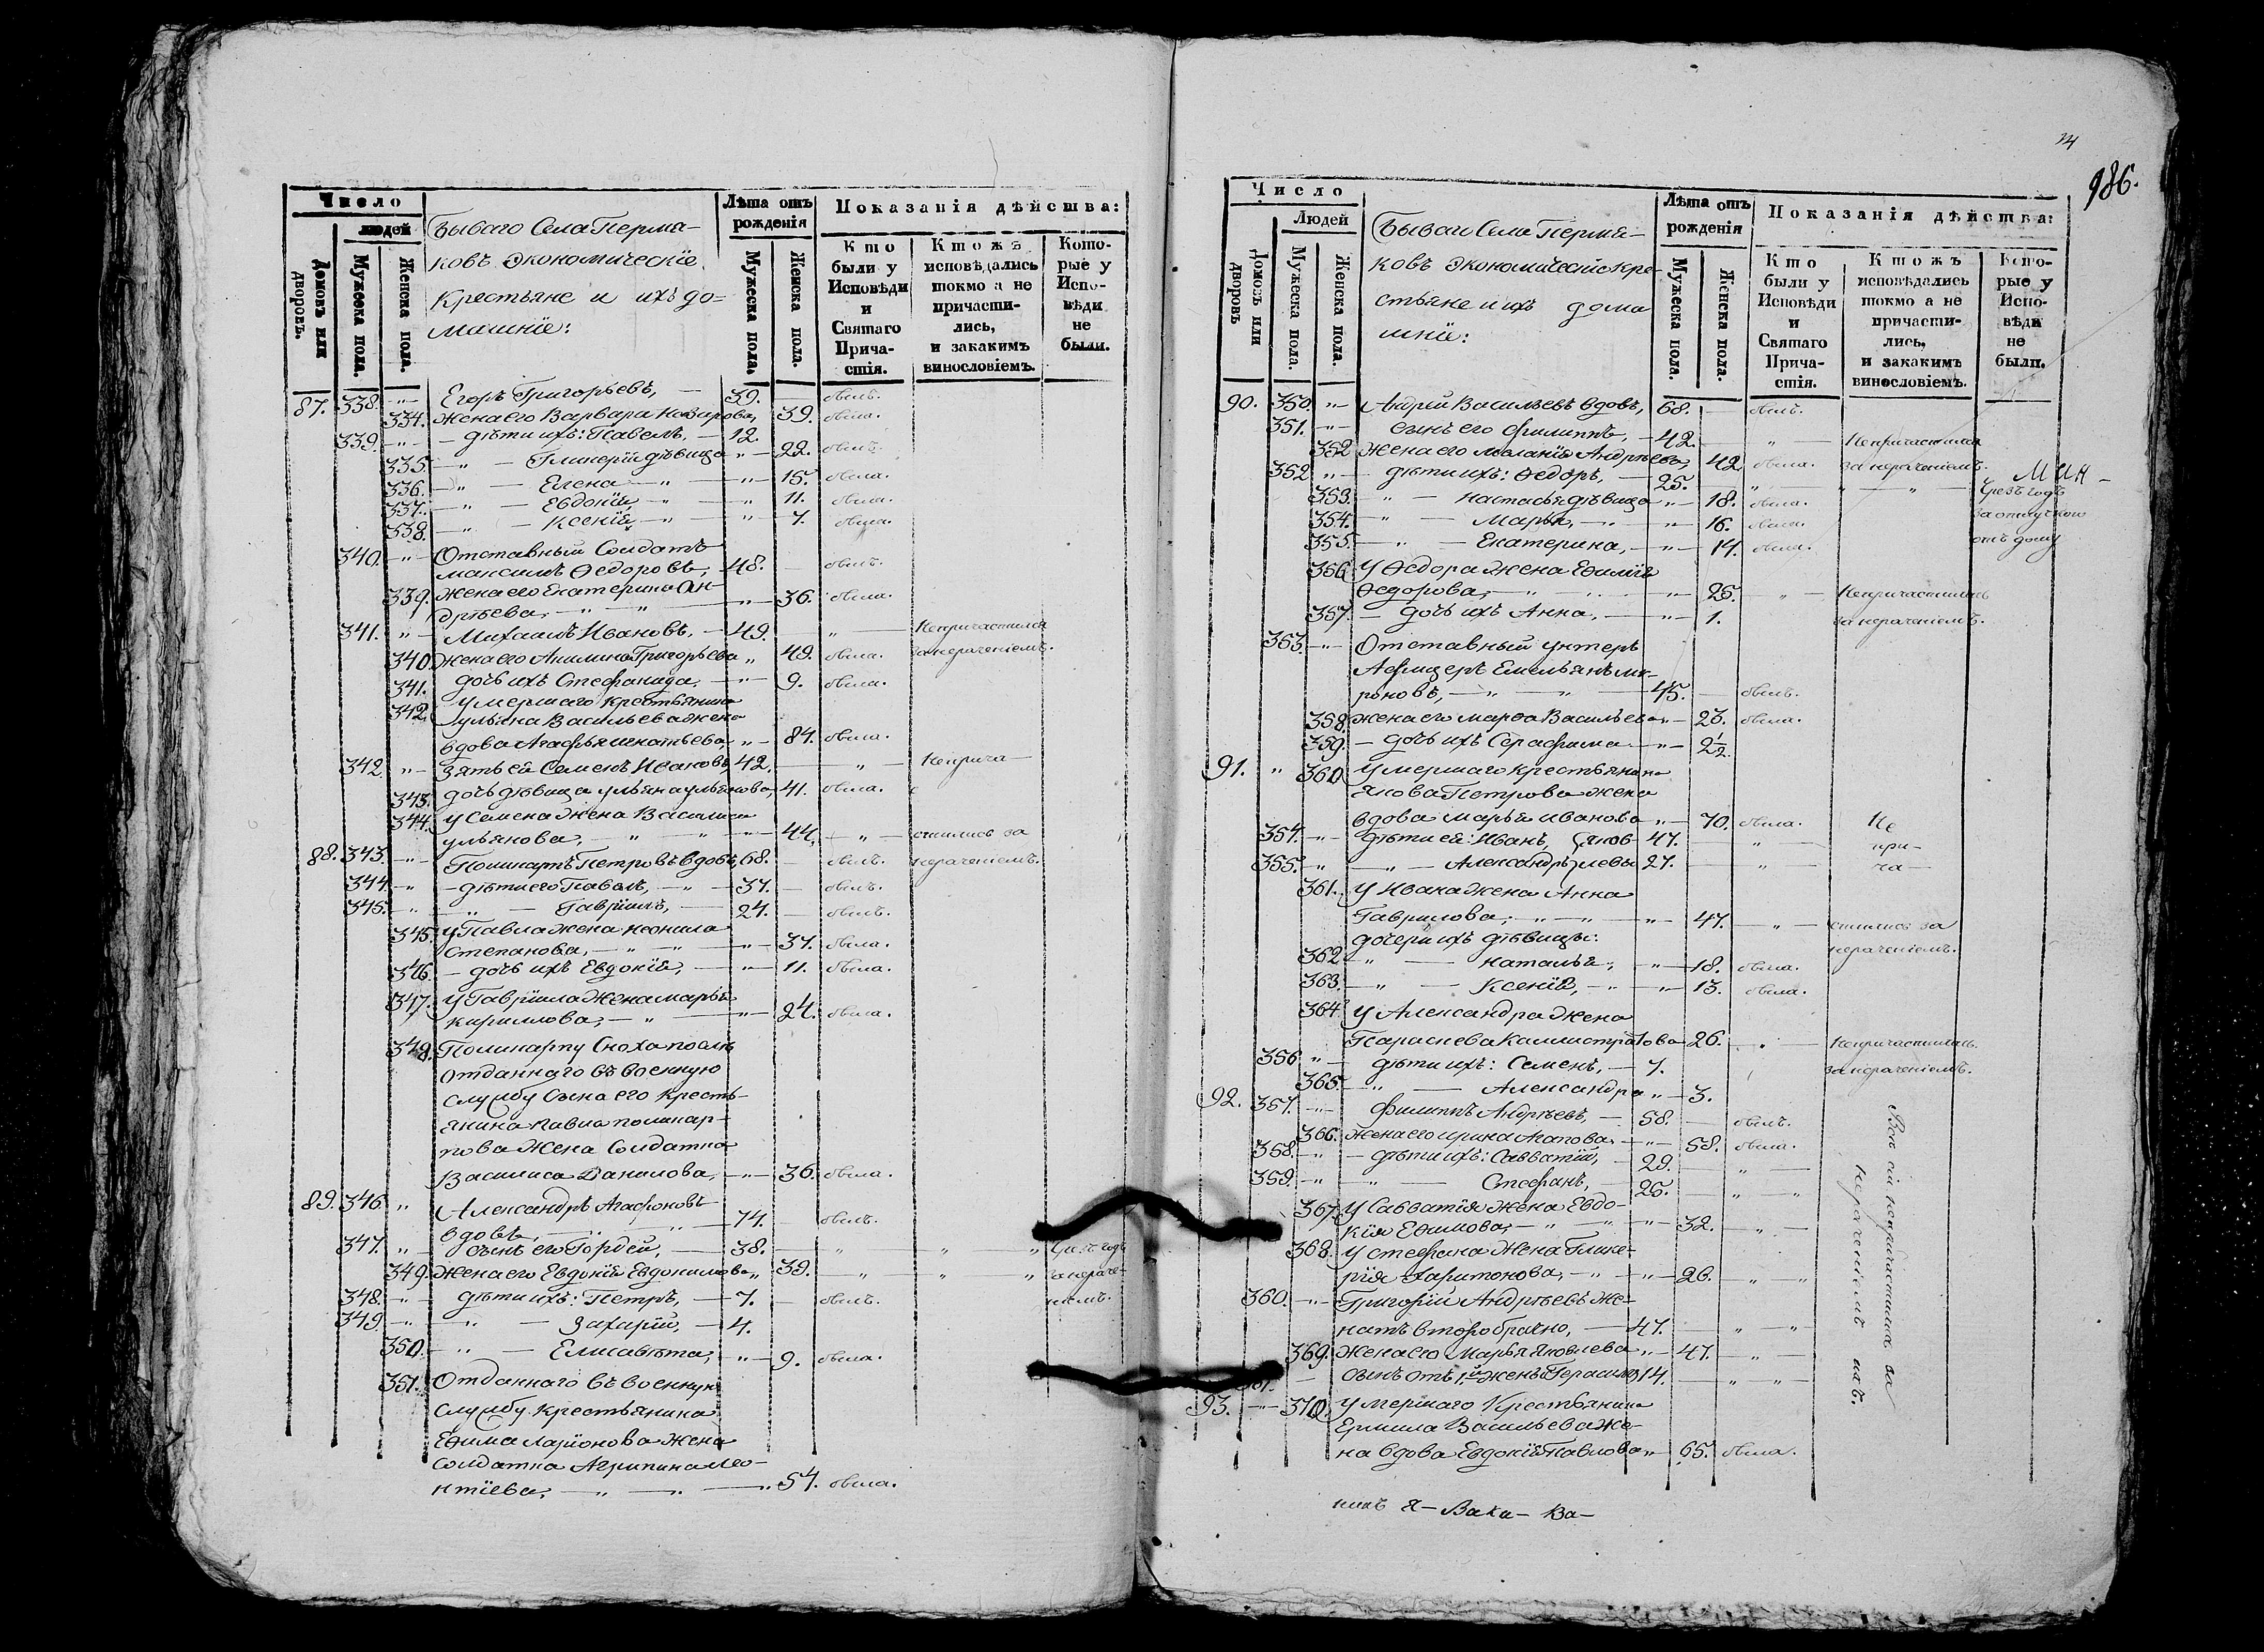 Число
людей
Домовъ или дворовъ.
Мужеска пола.
Женска пола.
Бываго Села Перма-
ковъ Экономическіе
Крестьяне и ихъ до=
машніе:
Лѣта отъ
рожденія
Мужеска пола.
Женска пола.
Показанія дѣйства:
Кто
были у
Исповѣди
и
Святаго
Прича-
стія.
Ктожъ
исповѣдались
токмо а не
причасти-
лись,
и закакимъ
винословіемъ.
Кото-
рые у
Испо-
вѣди
не
были.
87. 338. -"- Егоръ Григорьевъ, — 39. былъ.
334. Жена его Варвара Назарова, 39. была.
339. -"- — дѣти ихъ: Павелъ, — 12.
335. -"- — Гликерій дѣвица " — 22. былъ.
336. -"- — Елена — " — -"- 15. была.
337. " — Евдокія, — " — " 11. была.
338. -"- — Ксенія, — " " 7. была.
340. -"- Отставный Солдатъ
Максимъ Ѳедоровъ, 48. — былъ.
339. Жена его Екатерина Ан-
дрѣева, — " — " -"- 36. была.
341. " — Михаилъ Ивановъ, — 49. " — Непричастился
340. Жена его Акилина Григорьева " 49. была. за нераченіемъ.
341. дочь ихъ Стефанида, — -"- 9. была.
342. Умершаго крестьянина
Ульяна Васильева жена
вдова Агафья Игнатьева, " — 84. была.
342. " — Зять ей Семенъ Ивановъ, 42. — " — Неприча—
343. дочь дѣвица Ульяна Ульянова, 41. была.
344. У Семена жена Василиса
Ульянова, — " " -"- 44. — " — стились за
88. 343. -"- Поликарпъ Петровъ вдовъ, 68. — былъ. нераченіемъ.
344. -"- — дѣти его Павелъ, — " — 37. — былъ.
345. -"- — " — Гавріилъ, — 24. — былъ.
345. у Павла жена Неонила
Степанова, — " — " — -"- 37. была.
346. — дочь ихъ Евдокія, — -"- 11. была.
347. У Гавріила Жена Марья
Кириллова, — " — -"- 24. была.
348. Поликарпу Сноха послѣ
отданнаго въ военную
службу Сына его кресть-
янина Павла Поликар-
пова Жена Солдатка
Василиса Данилова, -"- 36. была.
89. 346. " Александръ Агафоновъ
вдовъ, — " — 74. — былъ.
347. " — Сынъ его Гордей, — 38. — " " " Чрезъ годъ
349. Жена его Евдокія Евдокимова " 39. — " — " " за нераче-
348. -"- дѣти ихъ: Петръ, — 7. — былъ. ніемъ.
349. -"- — " — Захарій, — 4.
350. -"- — Елисавета, -"- 9. была.
351. Отданнаго въ военную
службу крестьянина
Ефима Ларіонова Жена
Солдатка Агрипина Лео-
нтіева, — " — " — " 54. была.
34
986.
Число
Людей
Домовъ или дворовъ
Мужеска пола.
Женска пола.
Бываго Села Пермя-
ковъ Экономическіе Кре-
стьяне и ихъ дома
шніе:
Лѣта отъ
рожденія
Мужеска пола.
Женска пола.
Показанія дѣйства:
Кто
были у
Исповѣди
и
Святаго
Прича-
стія.
Ктожъ
исповѣдались
токмо а не
причасти-
лись,
и закакимъ
винословіемъ.
Кото-
рые у
Испо-
вѣди
не
были.
90. 350. "— Андрей Васильевъ вдовъ, 68. — былъ.
351. -"- сынъ его Филиппъ, — 42. — " — Непричастился
352. Жена его Маланія Андрѣева, 42. была. за нераченіемъ.
352. "— дѣти ихъ: Ѳедоръ, — 25. — " — " — " —
353. -"- — Настасья дѣвица " — 18. была. Чрезъ годъ
354. " — Марья, — " " — 16. была. за отлучкою
355. -"- — Екатерина, — " — 14. была. отъ дому
356. У Ѳедора жена Евфимія
Ѳедорова, — " — " — 25. — " — Непричастилась
357. — дочь ихъ Анна, — -"- 1. за нераченіемъ.
353. -"- Отставный унтеръ
Афицеръ Емельянъ Ми-
роновъ, — " — " — 45. — былъ.
358. жена его Марѳа Васильева " — 23. была.
359. — дочь ихъ Серафима -"- 2½
91. " 360. Умершаго крестьянина
Якова Петрова жена
вдова Марья Иванова " — 70. была. Не
354. -"- дѣти ей: Иванъ, (Яков- 47. — " — при-
355. " -"- — Александръ) левы 27. — " — ча—
361. У Ивана жена Анна
Гаврилова, — " — " -"- 47. — " — стились за
дочери ихъ дѣвицы: нераченіемъ.
362. " — Наталья, — -"- 18. была.
363. -"- — Ксенія, — " -"- 13. была.
364. У Александра жена
Парасиева Каллистратова 26. — " — Непричастились
356. "- дѣти ихъ: Семенъ, — 7. за нераченіемъ.
365. -"- — Александра " — 3.
92. 357. -"- Филиппъ Андрѣевъ, — 58. — былъ.
366. Жена его Ирина Агапова, -"- 58. была.
358. -"- — дѣти ихъ: Савватій, — 29. — " —
359. -"- — " — Стефанъ, — 25. — " — "
367. У Савватія жена Евдо-
кія Ефимова, — " — " -"- 32. — " —
368. У Стефана Жена Глике-
рія Харитонова, — " — " — 26. — " — "
360. -"- Григорій Андрѣевъ же-
натъ второбрачно, — 47. — " — "
369. Жена его Марья Яковлева " — 47. — " —
361. — Сынъ отъ 1й жены Герасимъ 14. — " — " —
93. -"- 370. Умершаго Крестьянина
Ермила Васильева Же-
на вдова Евдокія Павлова " — 65. была.
Всѣ сіи непричастились за
нераченіемъ